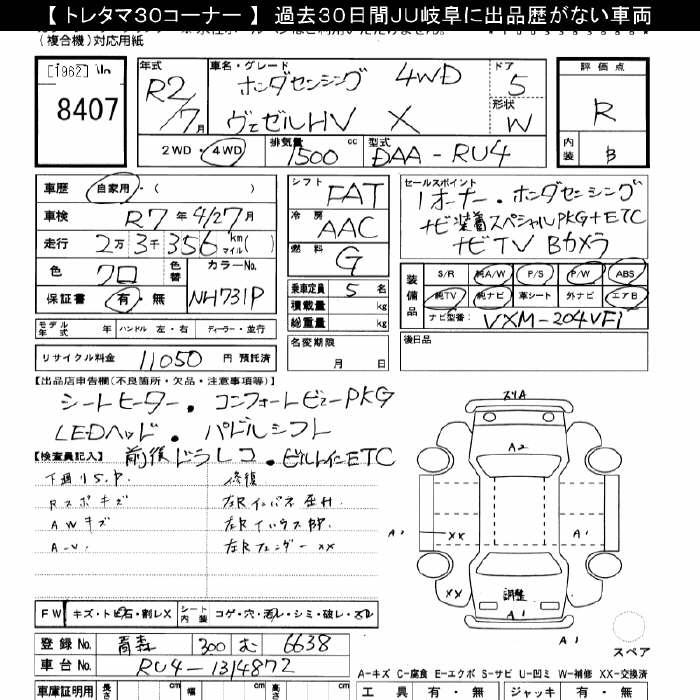 【トレタマ30コーナー】 過去30日間JU岐阜に出品歴がない車両
(複合機)対応用紙
8407
年式
R2/7月
車名・グレード
ホンダセンシング 4WD
ヴェゼルHV X
ドア
5
形状
W
評価点
R
内装
B
2WD・4WD
排気量
1500 cc
型式
DAA-RU4
車歴 自家用・( )
車検 R7年4/27月
走行 2万3千356 km マイル( )
色 クロ 色替 カラーNo. NH731P
保証書 有・無
シフト FAT
冷房 AAC
燃料 G
乗車定員 5 名
積載量 kg
総重量 kg
セールスポイント
1オーナー・ホンダセンシング
ナビ装着スペシャルPKG+ETC
ナビTV Bカメラ
装備品
S/R 純A/W P/S P/W ABS
純TV 純ナビ 革シート 外ナビ エアB
ナビ型番: VXM-204VFi
モデル年式 年 ハンドル 左・右 ディーラー・並行
リサイクル料金 11050 円 預託済
名変期限
月 日
後日品
【出品店申告欄(不良箇所・欠品・注意事項等)】
シートヒーター・コンフォートビューPKG
LEDヘッド・パドルシフト
前後ドラレコ・ビルトインETC
【検査員記入】
下廻りS.P. 修復
Rスポキズ 左Rインパネ歪み.
AWキズ
A-U.
左Rフェンダーxx
A2
A1 XX A1
XX 調整
A1
A1
FW キズ・トビ石・割レX シート内装 コゲ・穴・汚レ・シミ・破レ・スレ
スペア
登録No. 青森 300 む 6638
車台No. RU4-1314872
A-キズ C-腐食 E-エクボ S-サビ U-凹ミ W-補修 XX-交換済
車庫証明用 長さ cm 幅 cm 高さ cm
工具 有・無 ジャッキ 有・無